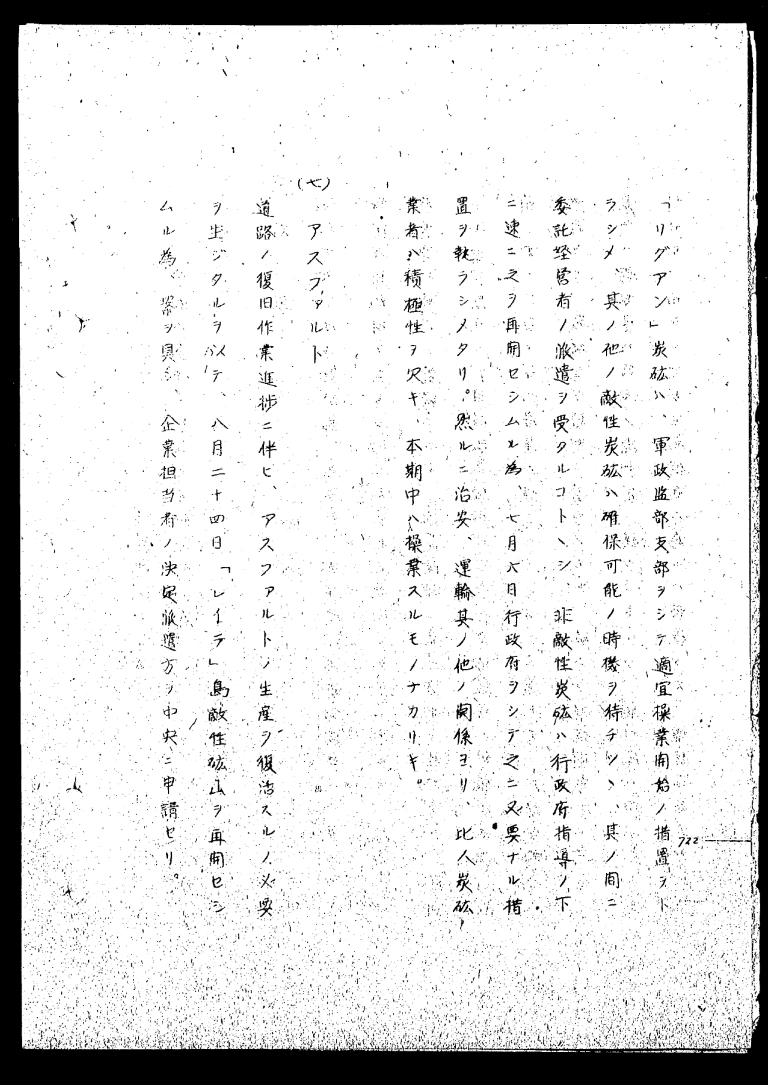 「リグアン」炭砿ハ、軍政監部支部ヲシテ適宜操業開始ノ措置ヲト
ラシメ、其ノ他ノ敵性炭砿ハ確保可能ノ時機ヲ待チツヽ、其ノ間ニ
委託経営者ノ派遣ヲ受クルコトヽシ、非敵性炭砿ハ行政府指導ノ下
ニ速ニ之ヲ再開セシムル為、七月六日行政府ヲシテ之ニ必要ナル措
置ヲ執ラシメタリ。然ルニ治安、運輸其ノ他ノ関係ヨリ、比人炭砿
業者ハ積極性ヲ欠キ、本期中ハ操業スルモノナカリキ。
(七)アスファルト
道路ノ復旧作業進捗ニ伴ヒ、アスファルトノ生産ヲ復活スルノ必要
ヲ生ジタルヲ以テ、八月二十四日「レイテ」島敵性砿山ヲ再開セシ
ムル為、案ヲ具シ、企業担当者ノ決定派遣方ヲ中央ニ申請セリ。
722